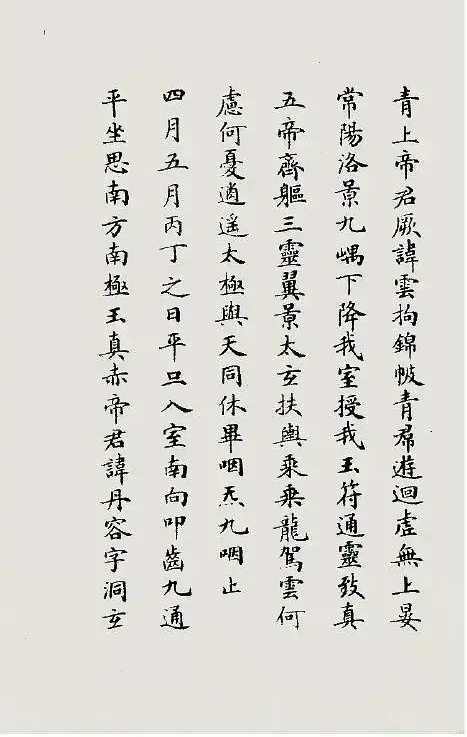 青上帝君厥諱雲拘錦帔青帬遊迴虛無上晏
常陽洛景九嵎下降我室授我玉符通靈致真
五帝齊軀三靈翼景太玄扶輿乘乘龍駕雲何
慮何憂逍遙太極與天同休畢咽炁九咽止
四月五月丙丁之日平旦入室南向叩齒九通
平坐思南方南極玉真赤帝君諱丹容字洞玄